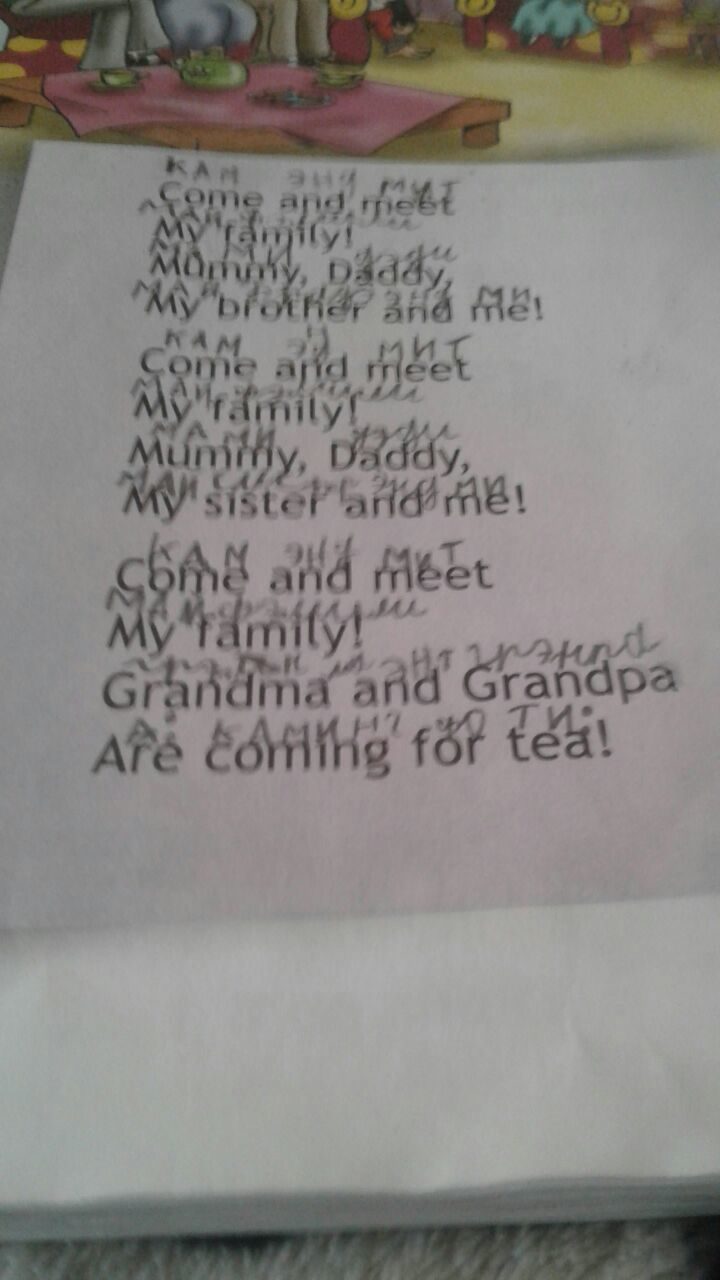 КАМ ЭНД МИТ
Come and meet
My family!
МАМИ дэди
Mummy, Daddy,
МАЙ ЭНД МИ
My brother and me!
КАМ МИТ
Come and meet
МАЙ фэмили
My family!
МАМИ дэди
Mummy, Daddy,
МАЙ ЭНД МИ
My sister and me!
КАМ ЭНД МИТ
Come and meet
МАЙ фэмили
My family!
грэнпа
Grandma and Grandpa
КАМИНГ ТИ:
Are coming for tea!